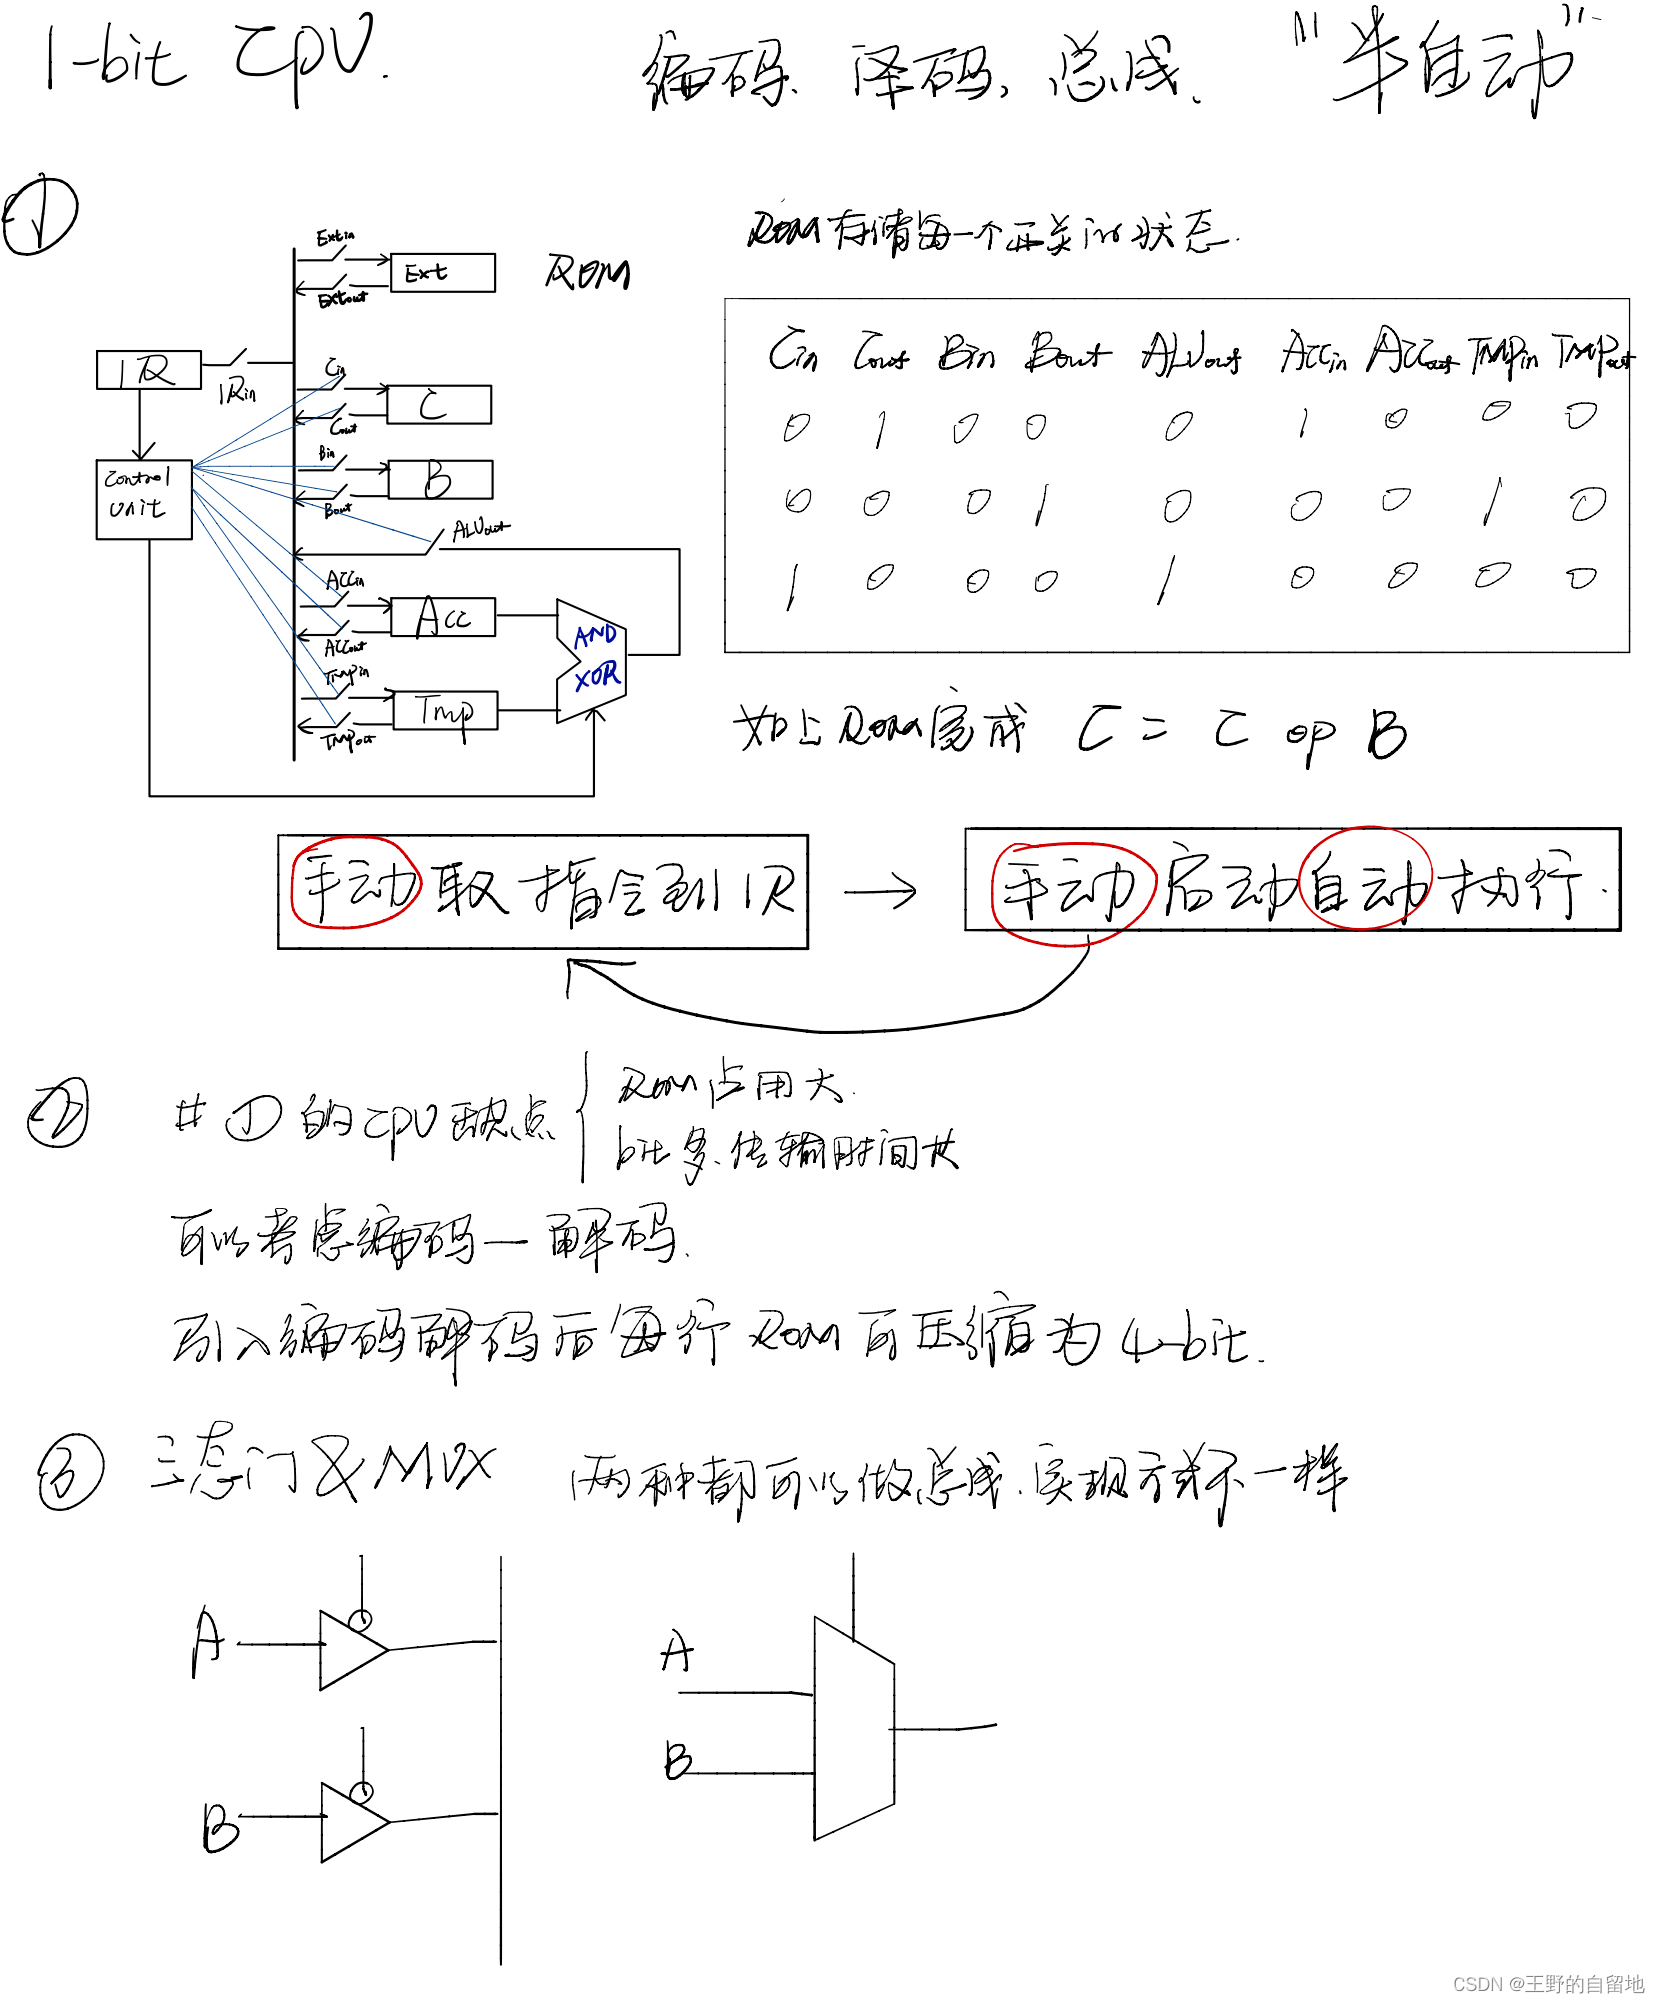 1-bit CPU.
编码、译码、总成、 "半自动"
①
ROM存储每一个开关的状态.
Extin
Ext
ROM
Extout
IR
IRin
Cin
C
Cout
Control Unit
Bin
B
Bout
ALUout
ACCin
Acc
ACCout
AND
XOR
TMPin
Tmp
TMPout
Cin Cout Bin Bout ALUout ACCin ACCout TMPin TMPout
0 1 0 0 0 1 0 0 0
0 0 0 1 0 0 0 1 0
1 0 0 0 1 0 0 0 0
如上ROM完成 C = C op B
手动取指令到IR → 手动启动自动执行.
② # ①的CPU缺点
ROM占用大.
bit多、传输时间长
可以考虑编码—解码.
引入编码解码后每行ROM可压缩为4-bit.
③ 三态门 & MUX 两种都可以做总成.实现方式不一样
A
B
A
B
CSDN @王野的自留地